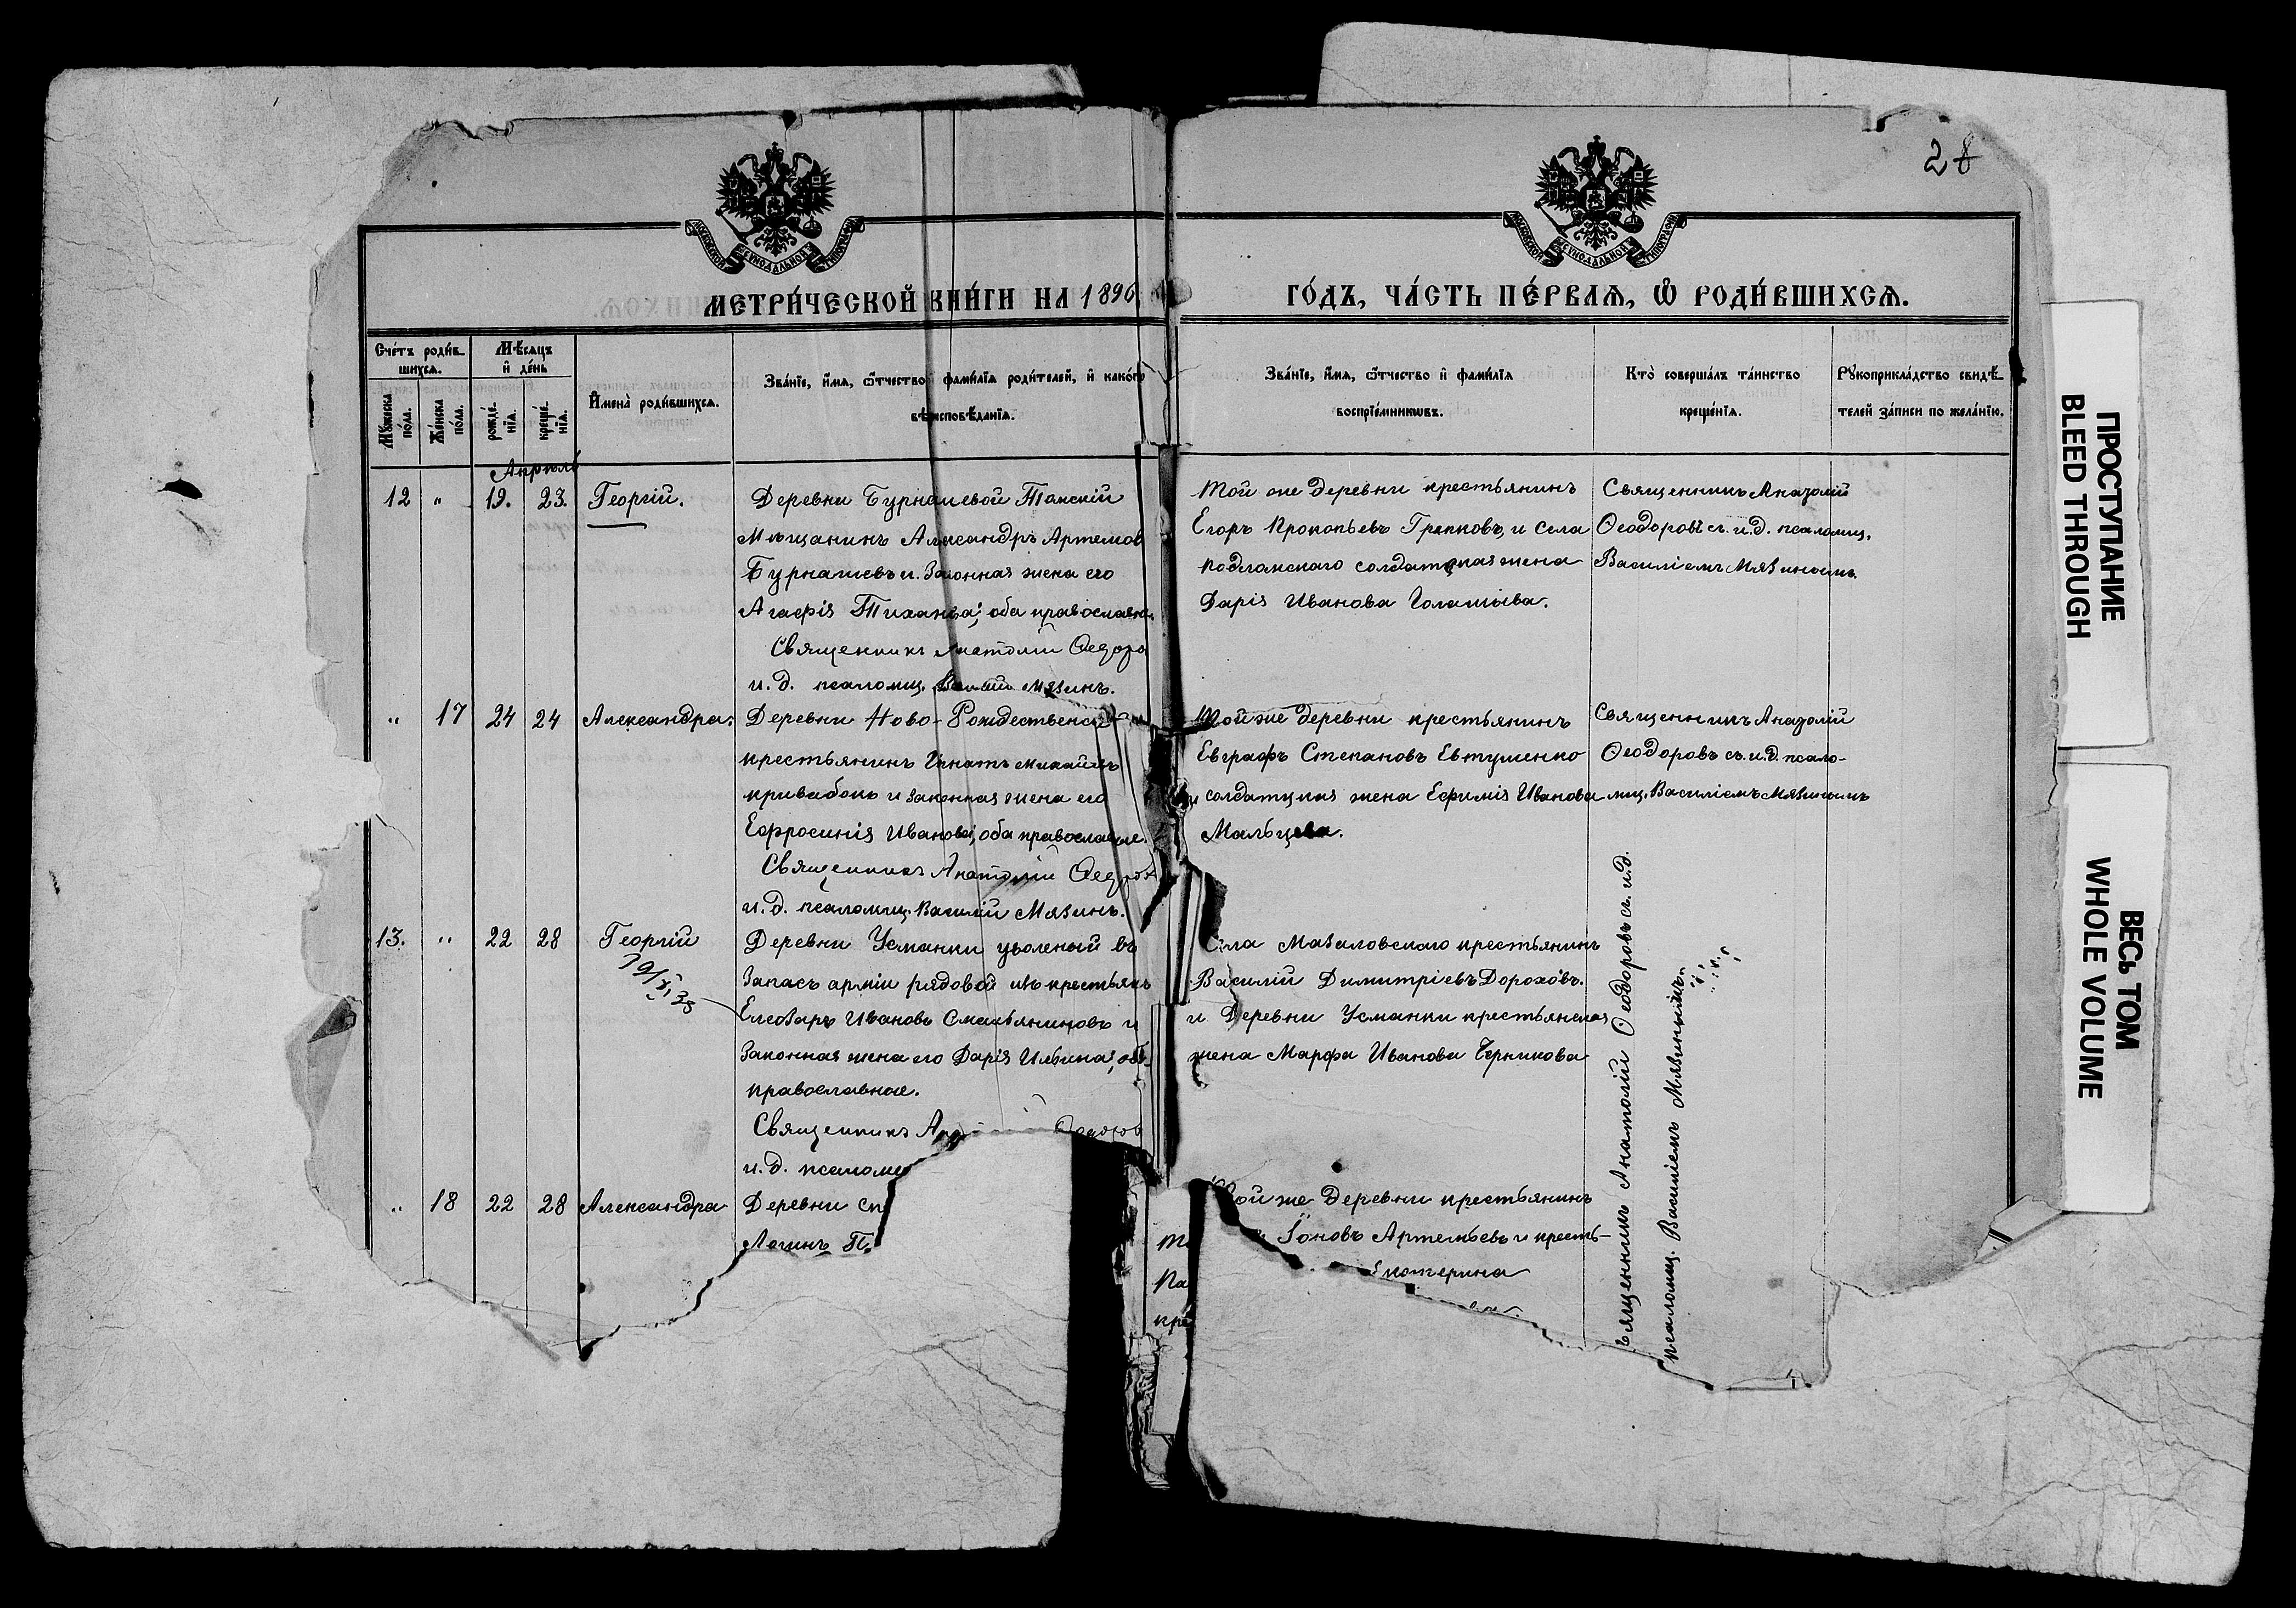 28
МОСКОВСКОЙ СУНОДАЛЬНОЙ ТИПОГРАФІИ
МОСКОВСКОЙ СУНОДАЛЬНОЙ ТИПОГРАФІИ
МЕТРИ́ЧЕСКОЙ КНИ́ГИ НА 1896 ГО́ДЪ, ЧА́СТЬ ПЕ́РВАѦ, Ѡ҆ РОДИ́ВШИХСѦ.
Сче́тъ роди́в-
шихсѧ.
Мꙋ́жеска по́ла.
Же́нска по́ла.
Мѣ́сѧцъ
и҆ де́нь
рожде́-
нїѧ.
креще́-
нїѧ.
И҆мена̀ роди́вшихсѧ.
Зва́нїе, и҆́мѧ, ѻ҆́тчество и҆ фами́лїѧ роди́телей, и҆ како́гѡ
вѣроисповѣ́данїѧ.
Зва́нїе, и҆́мѧ, ѻ҆́тчество и҆ фами́лїѧ
воспрїе́мникѡвъ.
Кто̀ соверша́лъ та́инство
креще́нїѧ.
Рꙋкоприкла́дство свидѣ́-
телей за́писи по жела́нїю.
Апрѣль
12 " 19. 23. Георгій.
Деревни Бурнашевой Томскій
Мѣщанинъ Александръ Артемов
Бурнашевъ и законная жена его
Агафія Тиханова; оба православн.
Священникъ Анатолій Ѳедоро
и.д. псаломщ. Василій Мязинъ.
Той же деревни крестьянинъ
Егоръ Прокопьевъ Грепковъ, и села
Подломскаго солдатская жена
Дарія Иванова
Священникъ Анатолій
Ѳеодоровъ съ и.д. псаломщ.
Василіемъ Мязинымъ.
" 17 24 24 Александра.
Деревни Ново-Рождественской
крестьянинъ Игнатъ Михайловъ
Кривобокъ и законная жена его
Ефросинія Иванова, оба православные.
Священникъ Анатолій Ѳедоров
и.д. псаломщ. Василій Мязинъ.
Той же деревни крестьянинъ
Евграфъ Степановъ Евтушенко
и солдатская жена Ефимія Иванова
Мальцева.
Священникъ Анатолій
Ѳеодоровъ съ и.д. псало-
мщ. Василіемъ Мязинымъ
13. " 22 28 Георгій
Деревни Усманки уволеный въ
запасъ арміи рядовой изъ крестьянъ
Елеозаръ Ивановъ Смольяниновъ и
законная жена его Дарія Ильина; оба
православные.
Священникъ
и.д. псаломщ
Села Мазаловскаго крестьянинъ
Василій Димитріевъ Дороховъ.
и Деревни Усманки крестьянская
жена Марфа Иванова Черникова
Священникъ Анатолій Ѳеодоровъ съ и.д.
псаломщ. Василіемъ Мязинымъ.
" 18 22 28 Александра
Деревни
Логинъ
Той же деревни крестьянинъ
Іоновъ Артемьевъ и кресть-
Екатерина
ПРОСТУПАНИЕ
BLEED THROUGH
ВЕСЬ ТОМ
WHOLE VOLUME